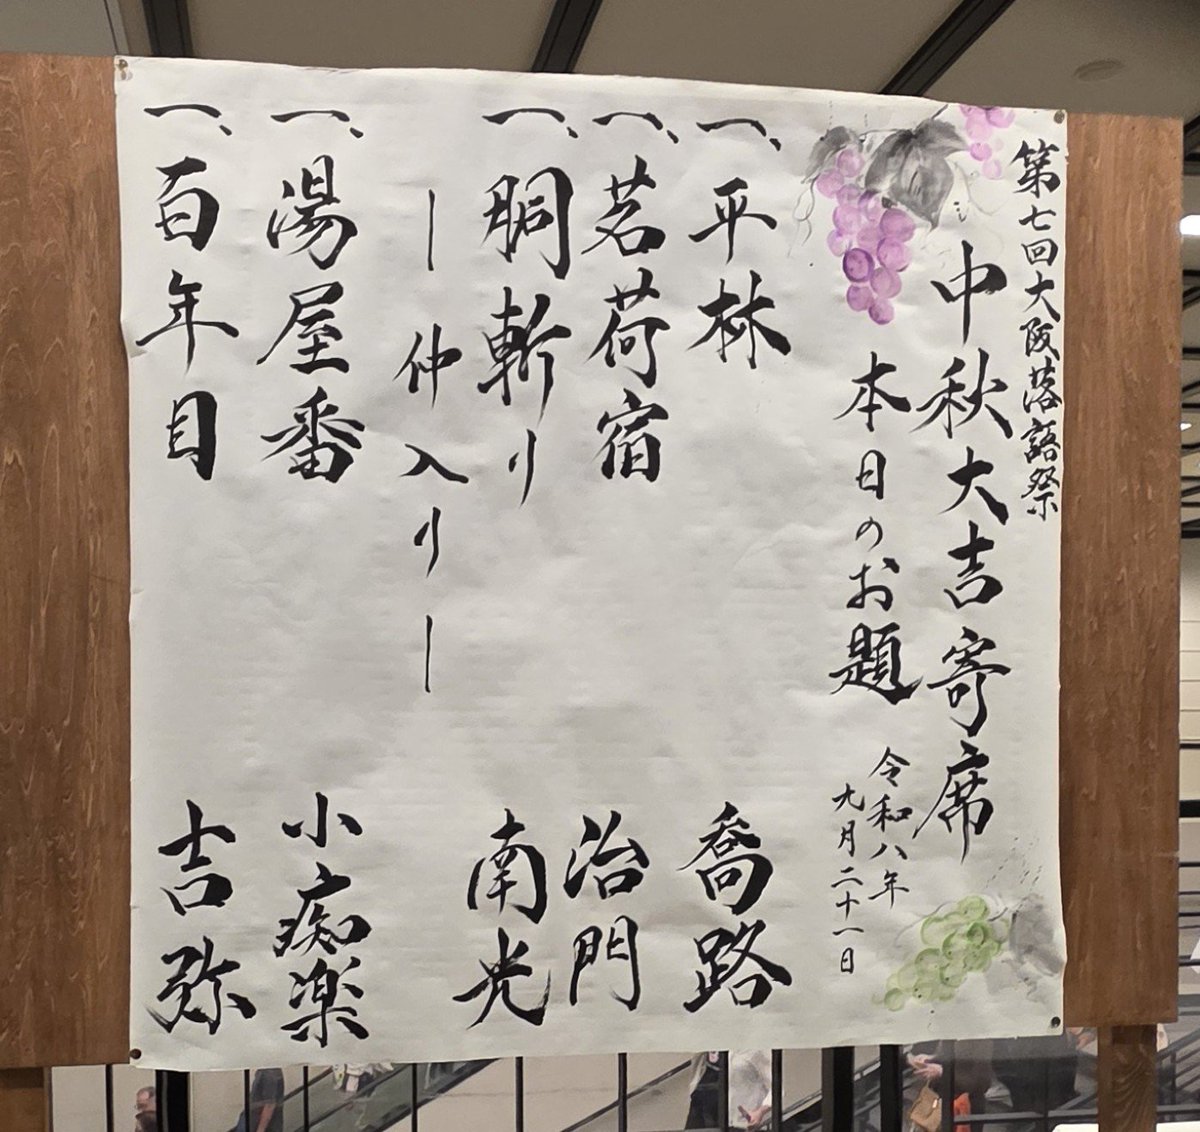 第七回大阪落語祭
中秋大吉寄席
本日のお題
令和八年
九月二十一日
一、平林 喬路
一、茗荷宿 治門
一、胴斬り 南光
ー仲入りー
一、湯屋番 小痴楽
一、百年目 吉弥